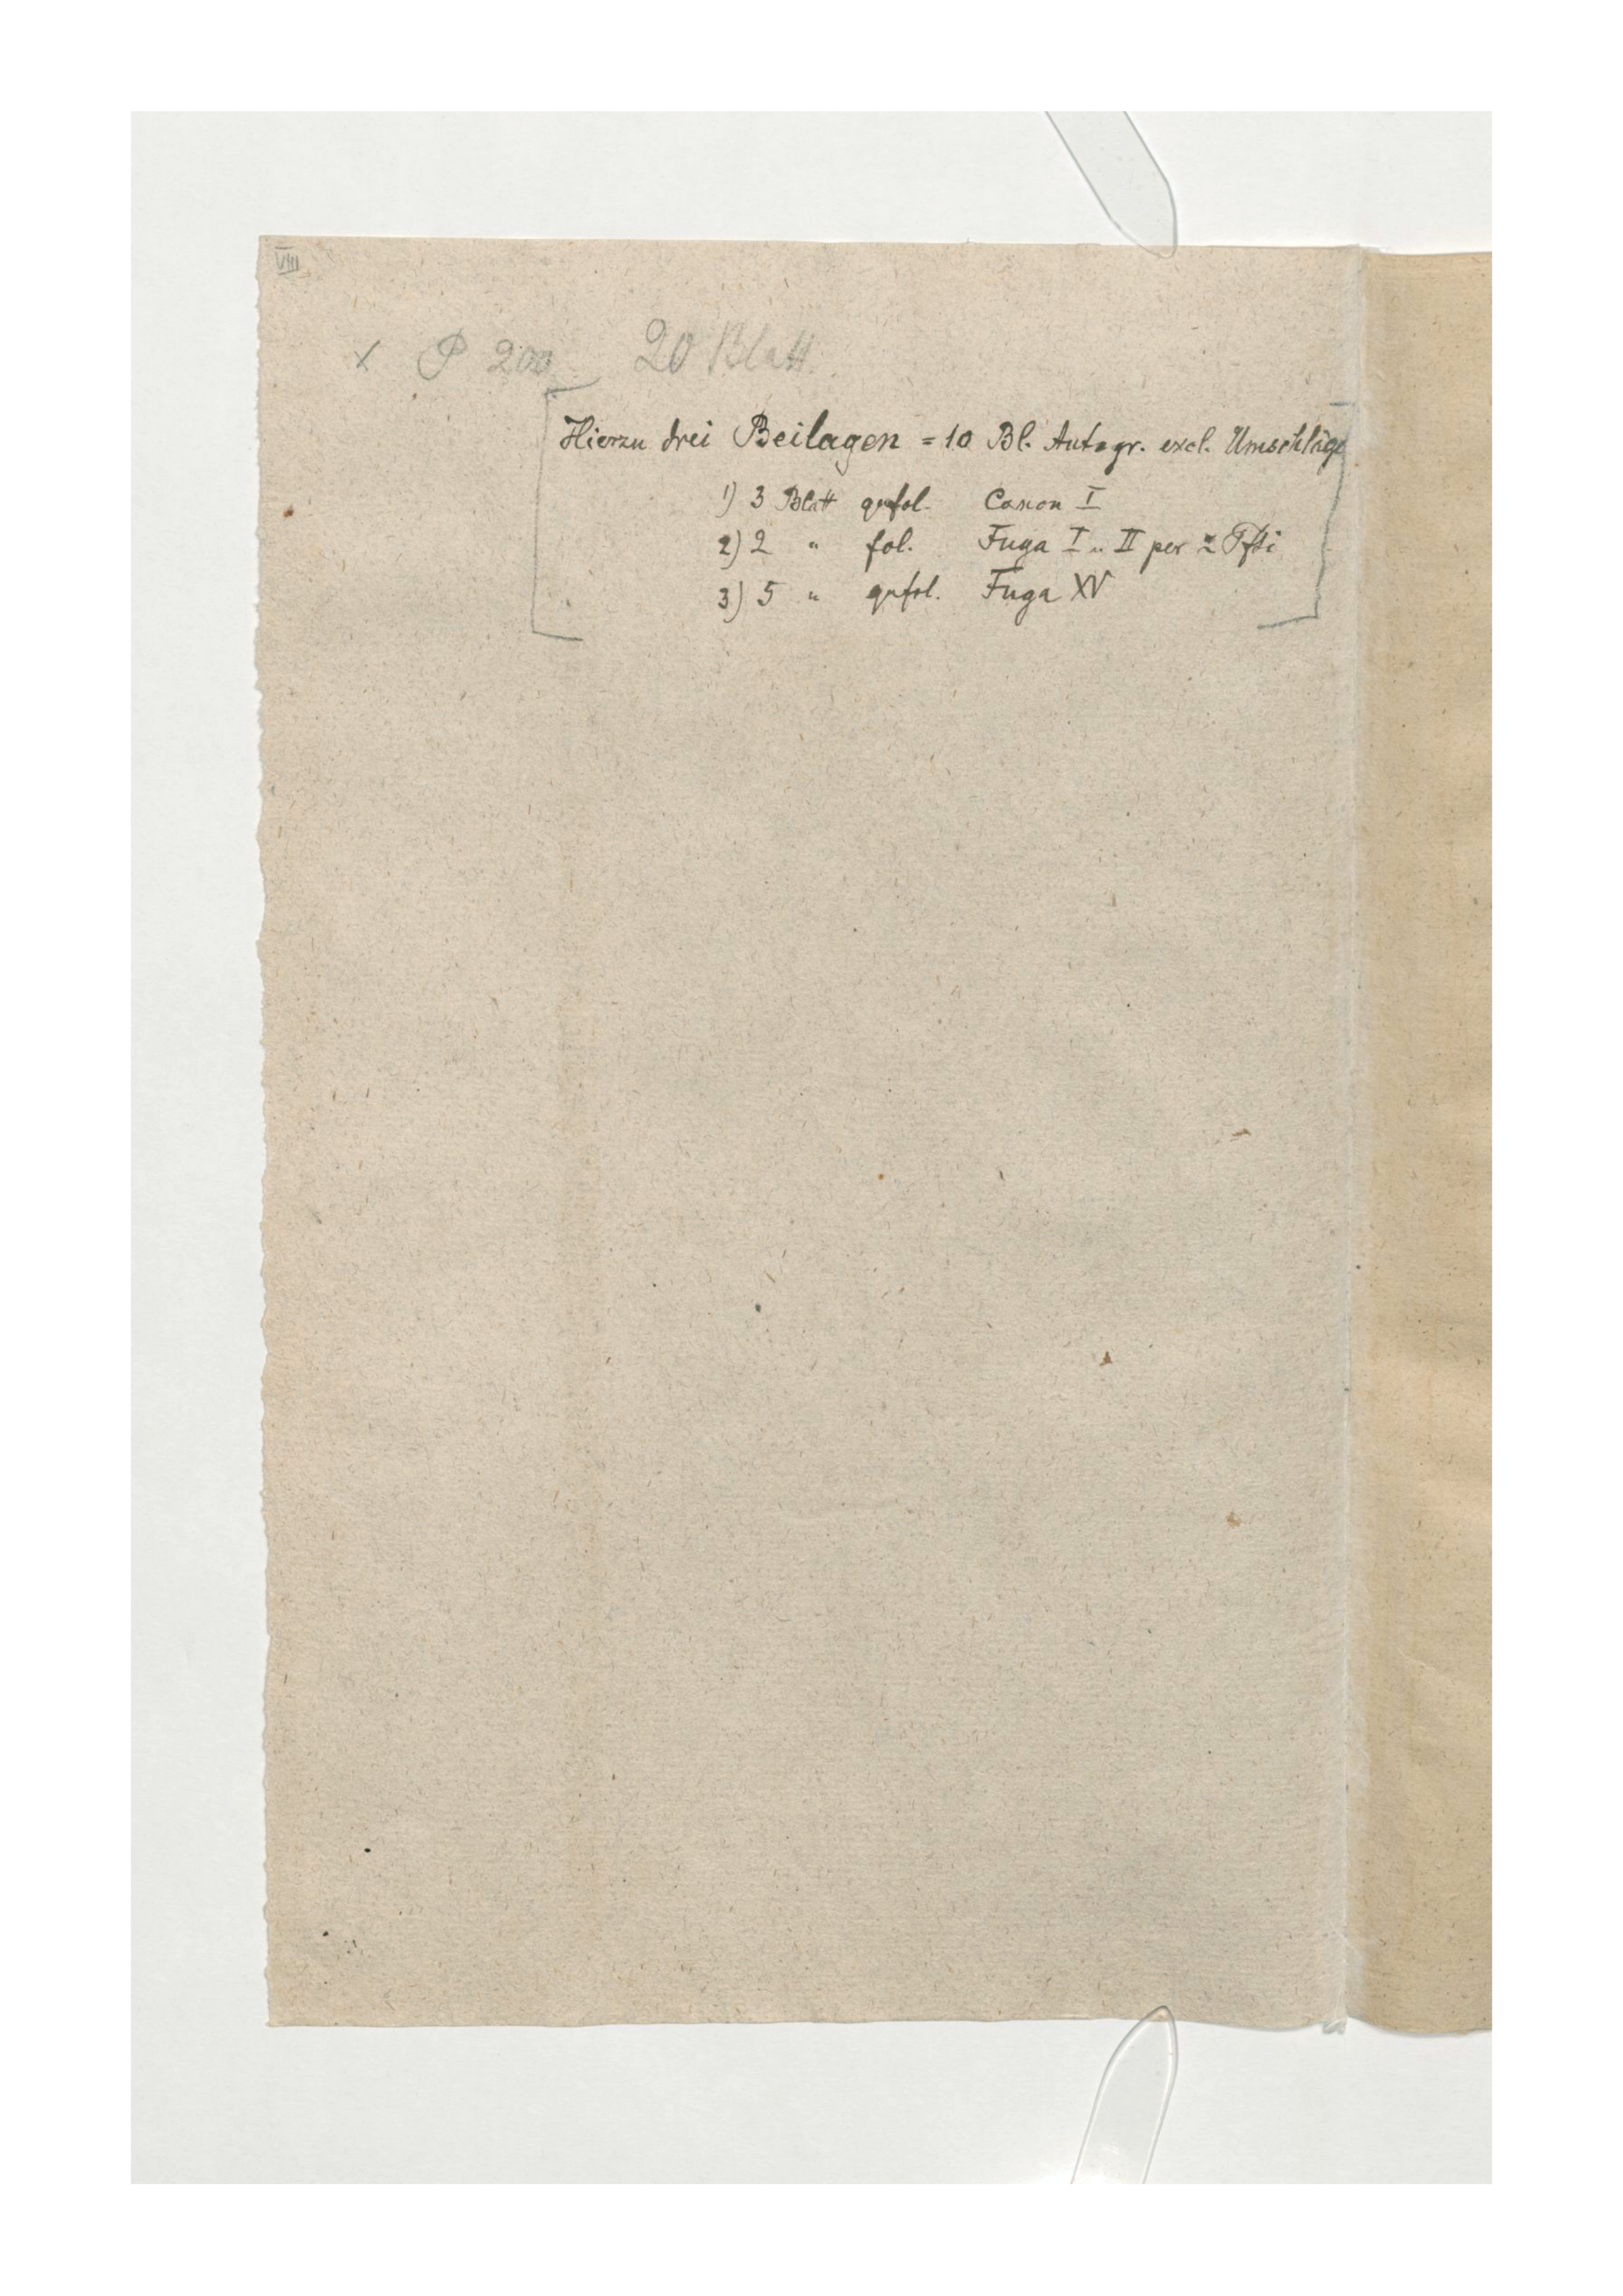 VIII
× P 200 20 Blatt
Hierzu drei Beilagen = 10 Bl. Autogr. excl. Umschläge
1) 3 Blatt qufol. Canon I
2) 2 " fol. Fuga I u. II per 2 Pfti
3) 5 " qufol. Fuga XV